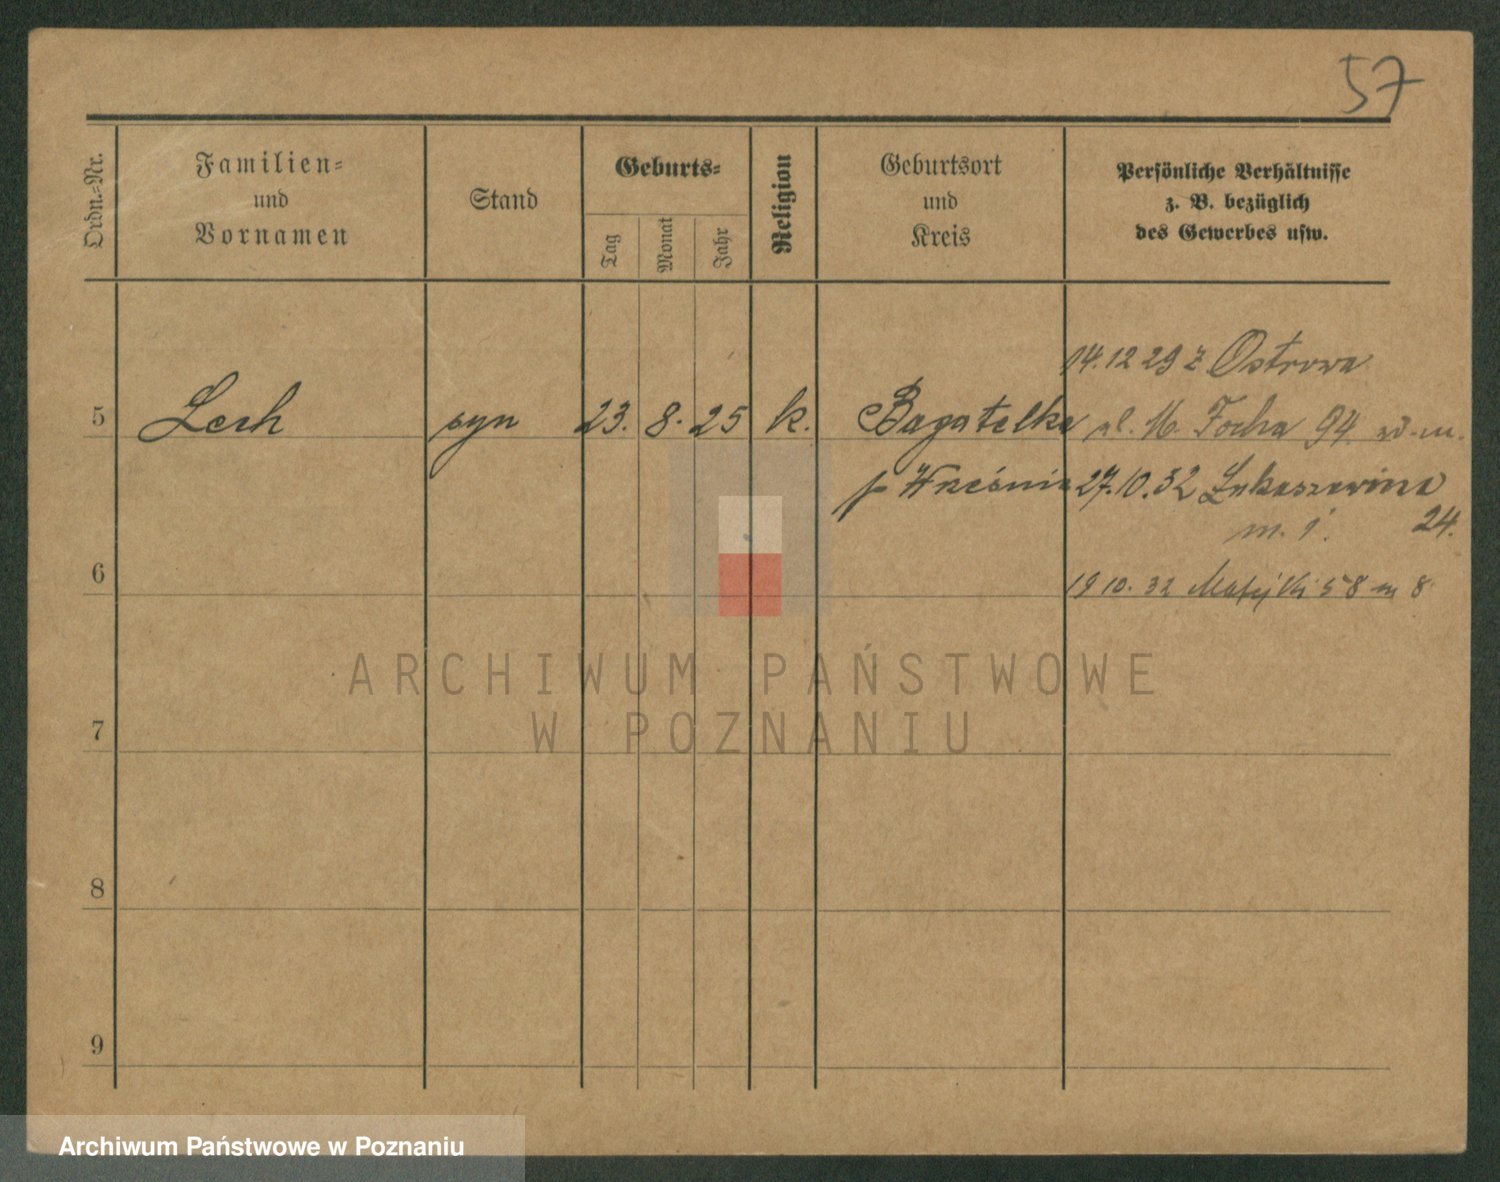 57
Ordn.-Nr.
Familien-
und
Vornamen
Stand
Geburts-
Tag
Monat
Jahr
Religion
Geburtsort
und
Kreis
Persönliche Verhältnisse
z. B. bezüglich
des Gewerbes usw.
14.12 29 z Ostrowa
5 Lech syn 23. 8. 25 k. Bagatelka ul. M. Focha 94
p Września 27.10.32 Łukaszewicza
m. 1. 24.
6
19 10. 32 Matejki 58 m 8
ARCHIWUM PAŃSTWOWE
W POZNANIU
7
8
9
Archiwum Państwowe w Poznaniu